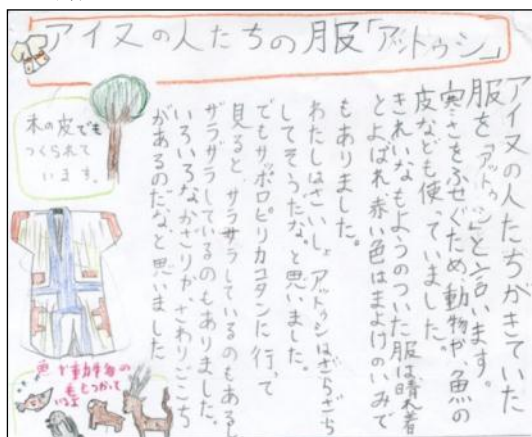 アイヌの人たちの服「アットゥシ」
アイヌの人たちがきていた
服を「アットゥシ」と言います。
寒さをふせぐため、動物や、魚の
皮なども使っていました。
きれいなもようのついた服は晴れ着
とよばれ、赤い色はまよけのいみで
もありました。
わたしはさいしょ、アットゥシはざらざら
してそうだな。と思いました。
でもサッポロピリカコタンに行って
見ると、サラサラしているのもあるし
ザラザラしているのもありました。
いろいろなかざりや、さわりごこち
があるのだな、と思いました
木の皮でも
つくられて
います。
魚や動物の
毛もつかって